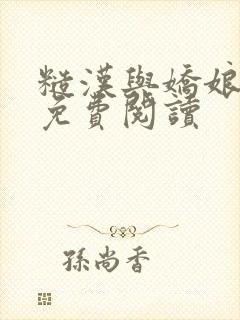 糙漢與嬌娘
免費閱讀
孫尚香